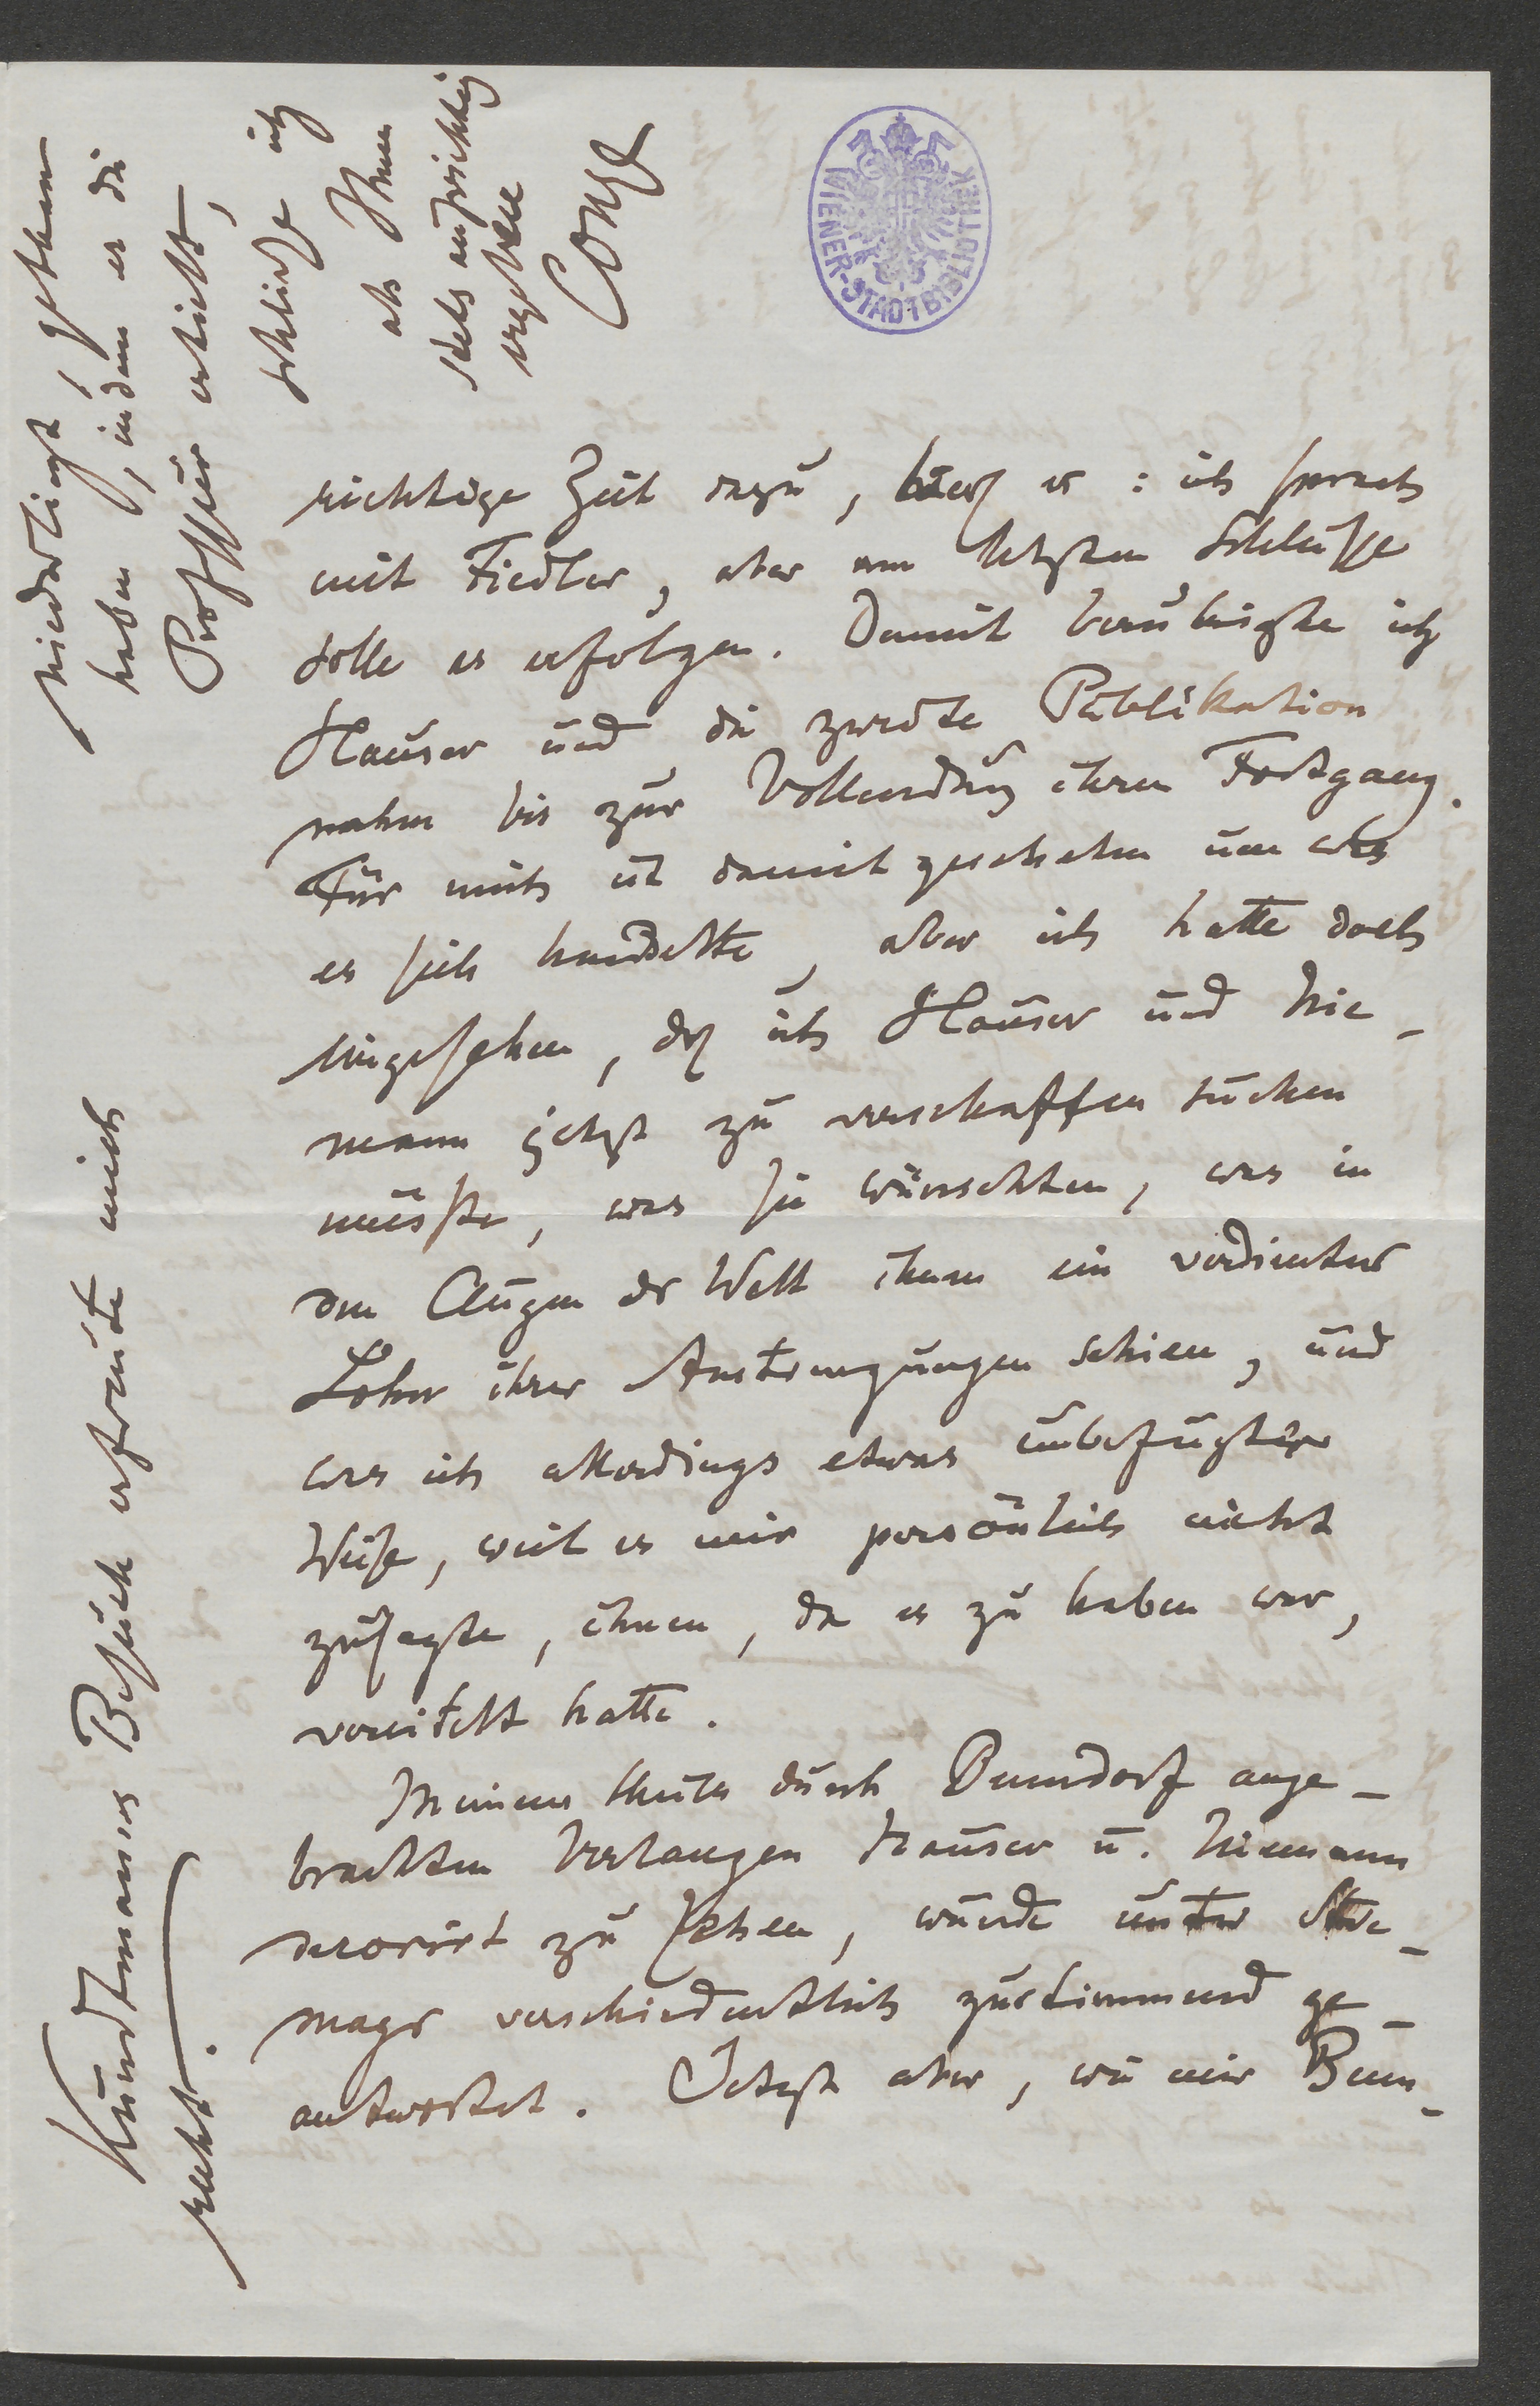 richtige Zeit dazu, hiesz es: ich sprach
mit Fiedler, aber am letzten Schlusse
solle es erfolgen. Damit beruhigte ich
Hauser und die zweite Publikation
nahm bis zur Vollendung ihren Fortgang.
Für mich ist damit geschehen um was
es sich handelte, aber ich hatte doch
eingesehen, dasz ich Hauser und Nie-
mann jetzt zu verschaffen suchen
müsste, was sie wünschten, was in
den Augen der Welt ihnen ein verdienter
Lohn ihrer Anstrengungen schien, und
was ich allerdings etwas unbefugter
Weise, weil es mir persönlich nicht
zusagte, ihnen, da es zu haben war,
vereitelt hatte.
Meinem theils durch Benndorf ange-
brachten Verlangen Hauser u. Niemann
decorirt zu sehen, wurde unter Stre-
mayr verschiedentlich zustimmend ge-
antwortet. Jetzt aber, wie mir Benn-
Kundtmanns Besuch erfreute mich
recht.
niederliegt, gethan
haben, indem er die
Professur erhielt,
schliesze ich
als Ihnen
stets aufrichtig
ergebener
Conze
WIENER-STADTBIBLIOTHEK